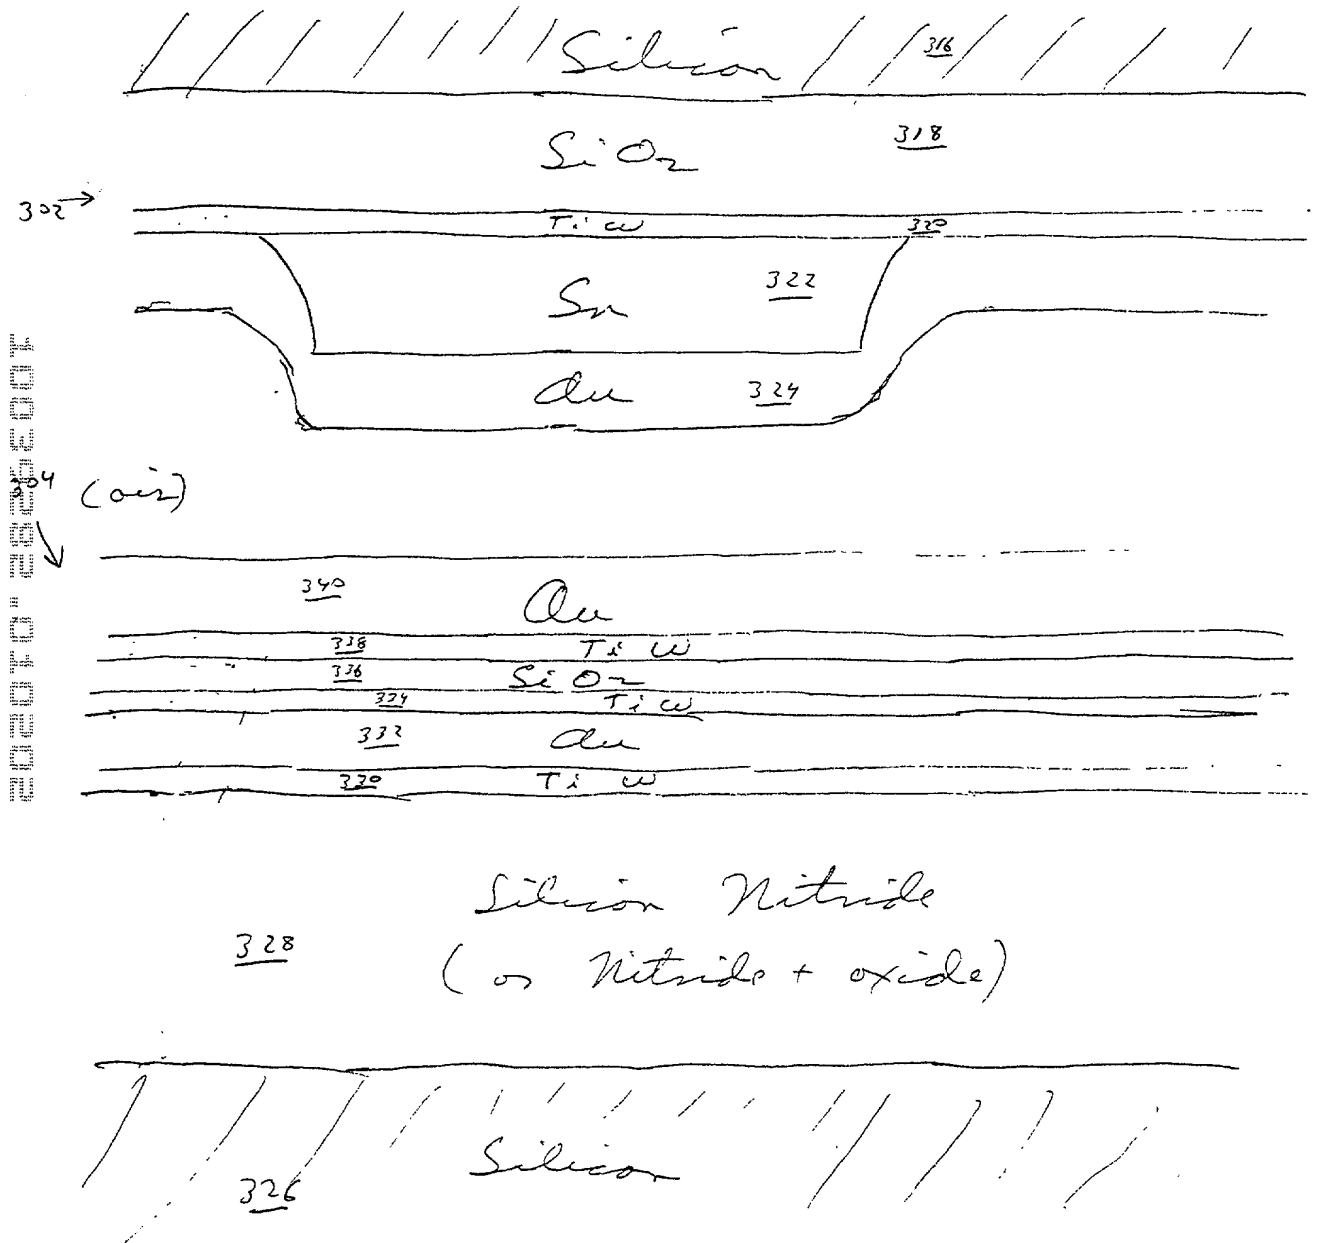 Silicon 316
SiO2 318
302
TiW 320
Sn 322
Au 324
304 (air)
340 Au
338 TiW
336 SiO2
334 TiW
332 Au
330 TiW
Silicon Nitride
328 (or Nitride + oxide)
Silicon
326